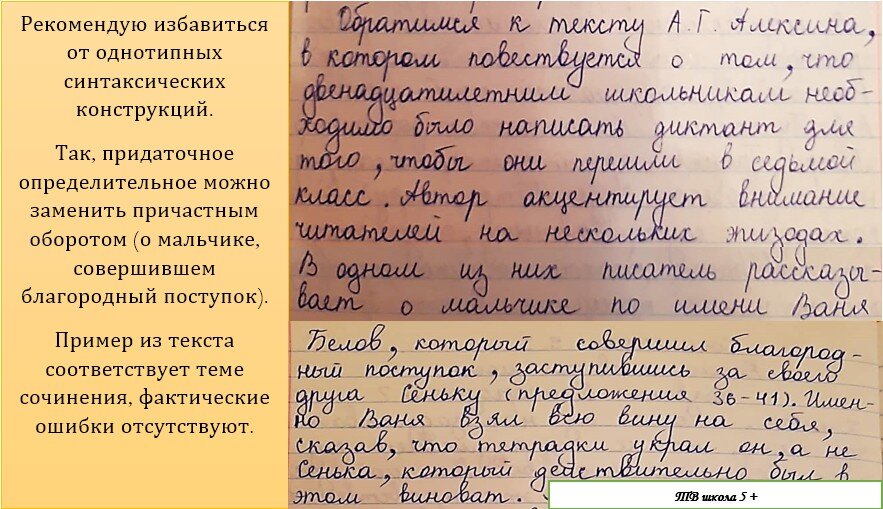 Рекомендую избавиться
от однотипных
синтаксических
конструкций.
Так, придаточное
определительное можно
заменить причастным
оборотом (о мальчике,
совершившем
благородный поступок).
Пример из текста
соответствует теме
сочинения, фактические
ошибки отсутствуют.
Обратимся к тексту А.Г. Алексина,
в котором повествуется о том, что
двенадцатилетним школьникам необ-
ходимо было написать диктант для
того, чтобы они перешли в седьмой
класс. Автор акцентирует внимание
читателей на нескольких эпизодах.
В одном из них писатель рассказы-
вает о мальчике по имени Ваня
Белов, который совершил благород-
ный поступок, заступившись за своего
друга Сеньку (предложения 36-41). Имен-
но Ваня взял всю вину на себя,
сказав, что тетрадки украл он, а не
Сенька, который действительно был в
этом виноват.
ТВ школа 5 +